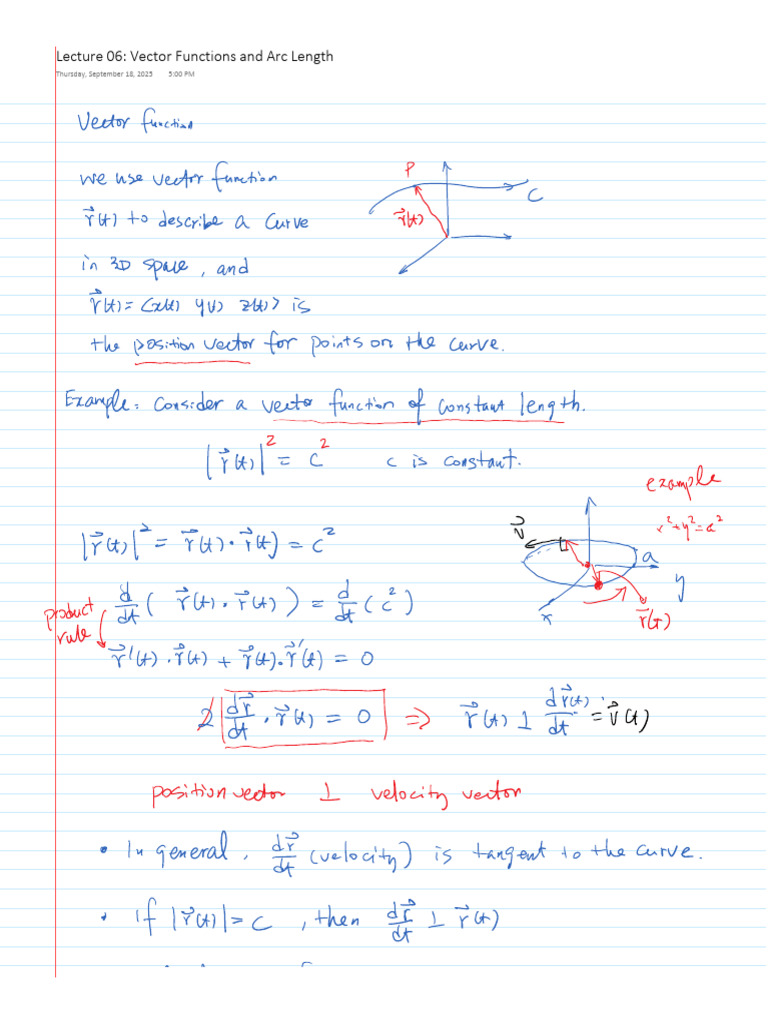 Lecture 06: Vector Functions and Arc Length
Thursday, September 18, 2025 5:00 PM
Vector function
we use vector function
r⃗(t) to describe a curve
in 3D space, and
r⃗(t) = <x(t) y(t) z(t)> is
the position vector for points on the curve.
P
C
r⃗(t)
Example: Consider a vector function of constant length.
|r⃗(t)|² = c² c is constant.
example
x²+y²=a²
v⃗
a
y
x
r⃗(t)
|r⃗(t)|² = r⃗(t)·r⃗(t) = c²
d/dt ( r⃗(t)·r⃗(t) ) = d/dt (c²)
product
rule
r⃗'(t)·r⃗(t) + r⃗(t)·r⃗'(t) = 0
2 dr⃗/dt · r⃗(t) = 0 ⇒ r⃗(t) ⊥ dr⃗(t)/dt = v⃗(t)
position vector ⊥ velocity vector
• In general, dr⃗/dt (velocity) is tangent to the curve.
• If |r⃗(t)| = c, then dr⃗/dt ⊥ r⃗(t)